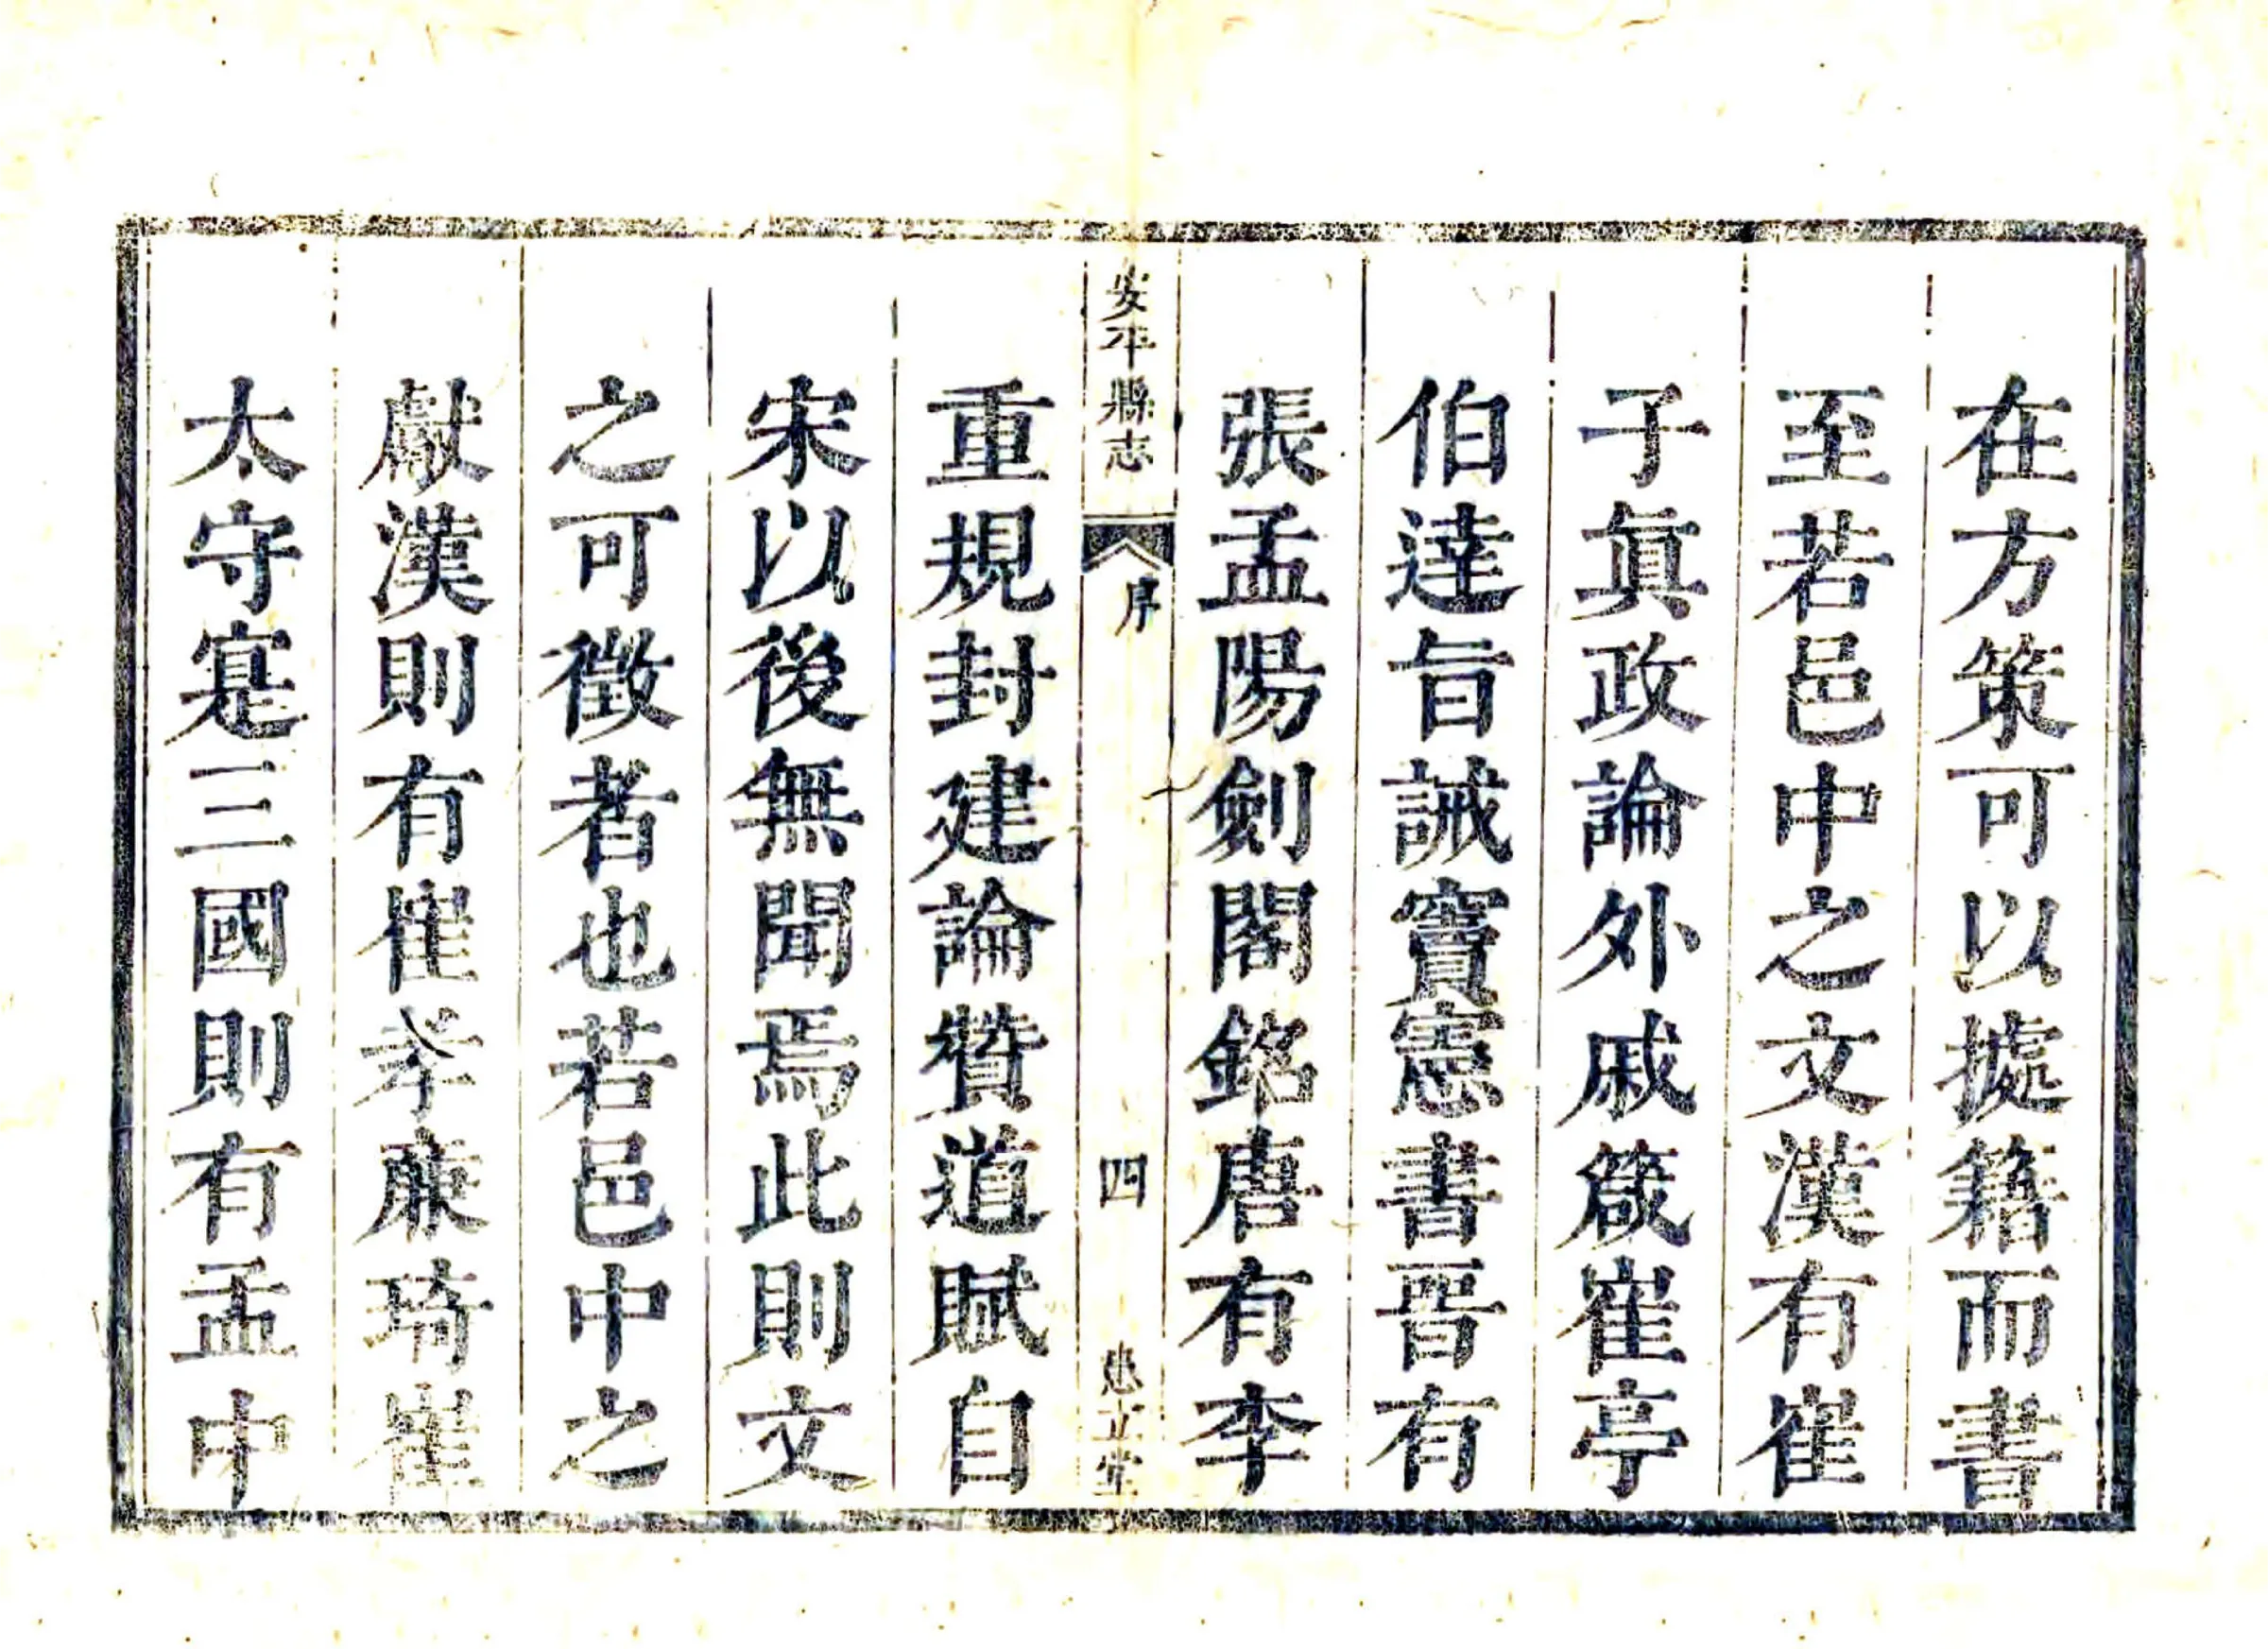 在方策可以㨿籍而書
至若邑中之文漢有崔
子眞政論外戚箴崔亭
伯達旨誡竇憲書晉有
張孟陽劍閣銘唐有李
安平縣志
序
四
重規封建論贊道賦自
宋以後無聞焉此則文
之可徵者也若邑中之
獻漢則有崔孝亷琦崔
太守寔三國則有孟中